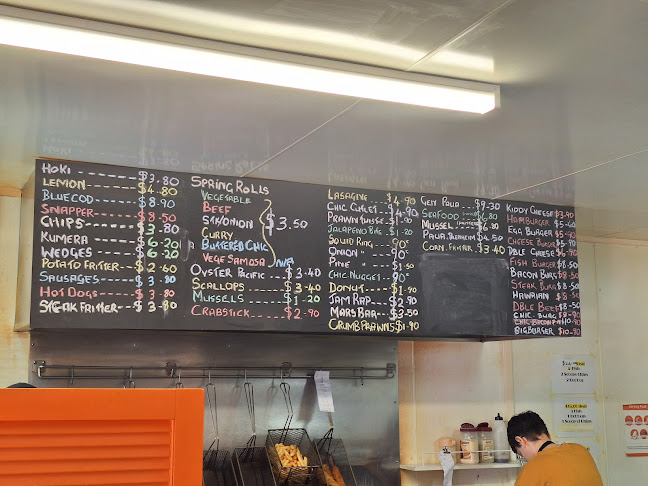 HOKI $3.80
LEMON $4.80
BLUECOD $8.90
SNAPPER $8.50
CHIPS $3.80
KUMERA $6.20
WEDGES $6.20
POTATO FRITTER $2.60
SAUSAGES $3.80
HOT DOGS $3.80
STEAK FRITTER $3.80
SPRING ROLLS
VEGETABLE
BEEF
STK/ONION
CURRY
BUTTERED CHIC
VEGE SAMOSA
$3.50
OYSTER PACIFIC $3.40
SCALLOPS $3.40
MUSSELS $1.20
CRABSTICK $2.90
LASAGNE $4.90
CHIC CUTLET $4.90
PRAWN TWISTE $1.90
JALAPENO $1.20
SQUID RING 90¢
ONION 90¢
PINE $1.50
CHIC NUGGET 90¢
DONUT $1.90
JAM RAP $2.90
MARS BAR $3.50
CRUMB PRAWNS $1.90
GEN PAUA $9.30
SEAFOOD $6.80
MUSSEL $6.80
PAUA $4.50
CORN FRITTER $3.40
KIDDY CHEESE $3.90
HAMBURGER
EGG BURGER
CHEESE BURGER
DBLE CHEESE
FISH BURGER
BACON BURG
STEAK BURG
HAWAIIAN
DBLE BEEF
CHIC BURG
BIGBURGER $10.90